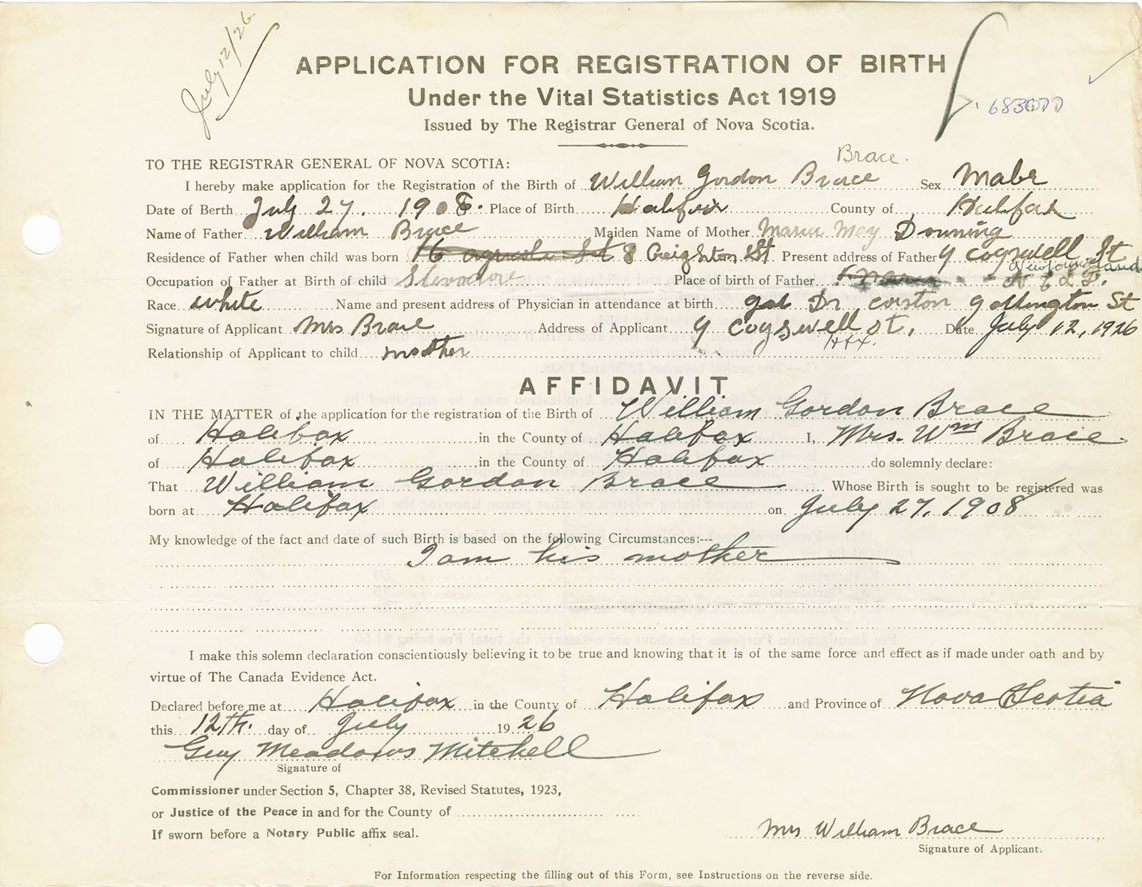 July 12/26
APPLICATION FOR REGISTRATION OF BIRTH
Under the Vital Statistics Act 1919
683077
Issued by The Registrar General of Nova Scotia.
Brace.
TO THE REGISTRAR GENERAL OF NOVA SCOTIA:
I hereby make application for the Registration of the Birth of William Gordon Brace Sex
Date of Berth July 27. 1908. Place of Birth Halifax County of Halifax
Name of Father William Brace Maiden Name of Mother May Downing
Residence of Father when child was born 8 Creighton St Present address of Father 9 Cogswell St
Newfoundland
Occupation of Father at Birth of child Stevadore Place of birth of Father
Race white Name and present address of Physician in attendance at birth Dr. St
Signature of Applicant Mrs Brace Address of Applicant 9 Cogswell St. Date July 12, 1926
Hfx.
Relationship of Applicant to child mother
AFFIDAVIT
IN THE MATTER of the application for the registration of the Birth of William Gordon Brace
of Halifax in the County of Halifax I, Mrs. Wm Brace
of Halifax in the County of Halifax do solemnly declare:
That William Gordon Brace Whose Birth is sought to be registered was
born at Halifax on July 27, 1908
My knowledge of the fact and date of such Birth is based on the following Circumstances:--
I am his mother
I make this solemn declaration conscientiously believing it to be true and knowing that it is of the same force and effect as if made under oath and by
virtue of The Canada Evidence Act.
Declared before me at Halifax in the County of Halifax and Province of Nova Scotia
this 12th. day of July 1926
Guy Meadows Mitchell
Signature of
Commissioner under Section 5, Chapter 38, Revised Statutes, 1923,
or Justice of the Peace in and for the County of
If sworn before a Notary Public affix seal.
Mrs William Brace
Signature of Applicant.
For Information respecting the filling out of this Form, see Instructions on the reverse side.